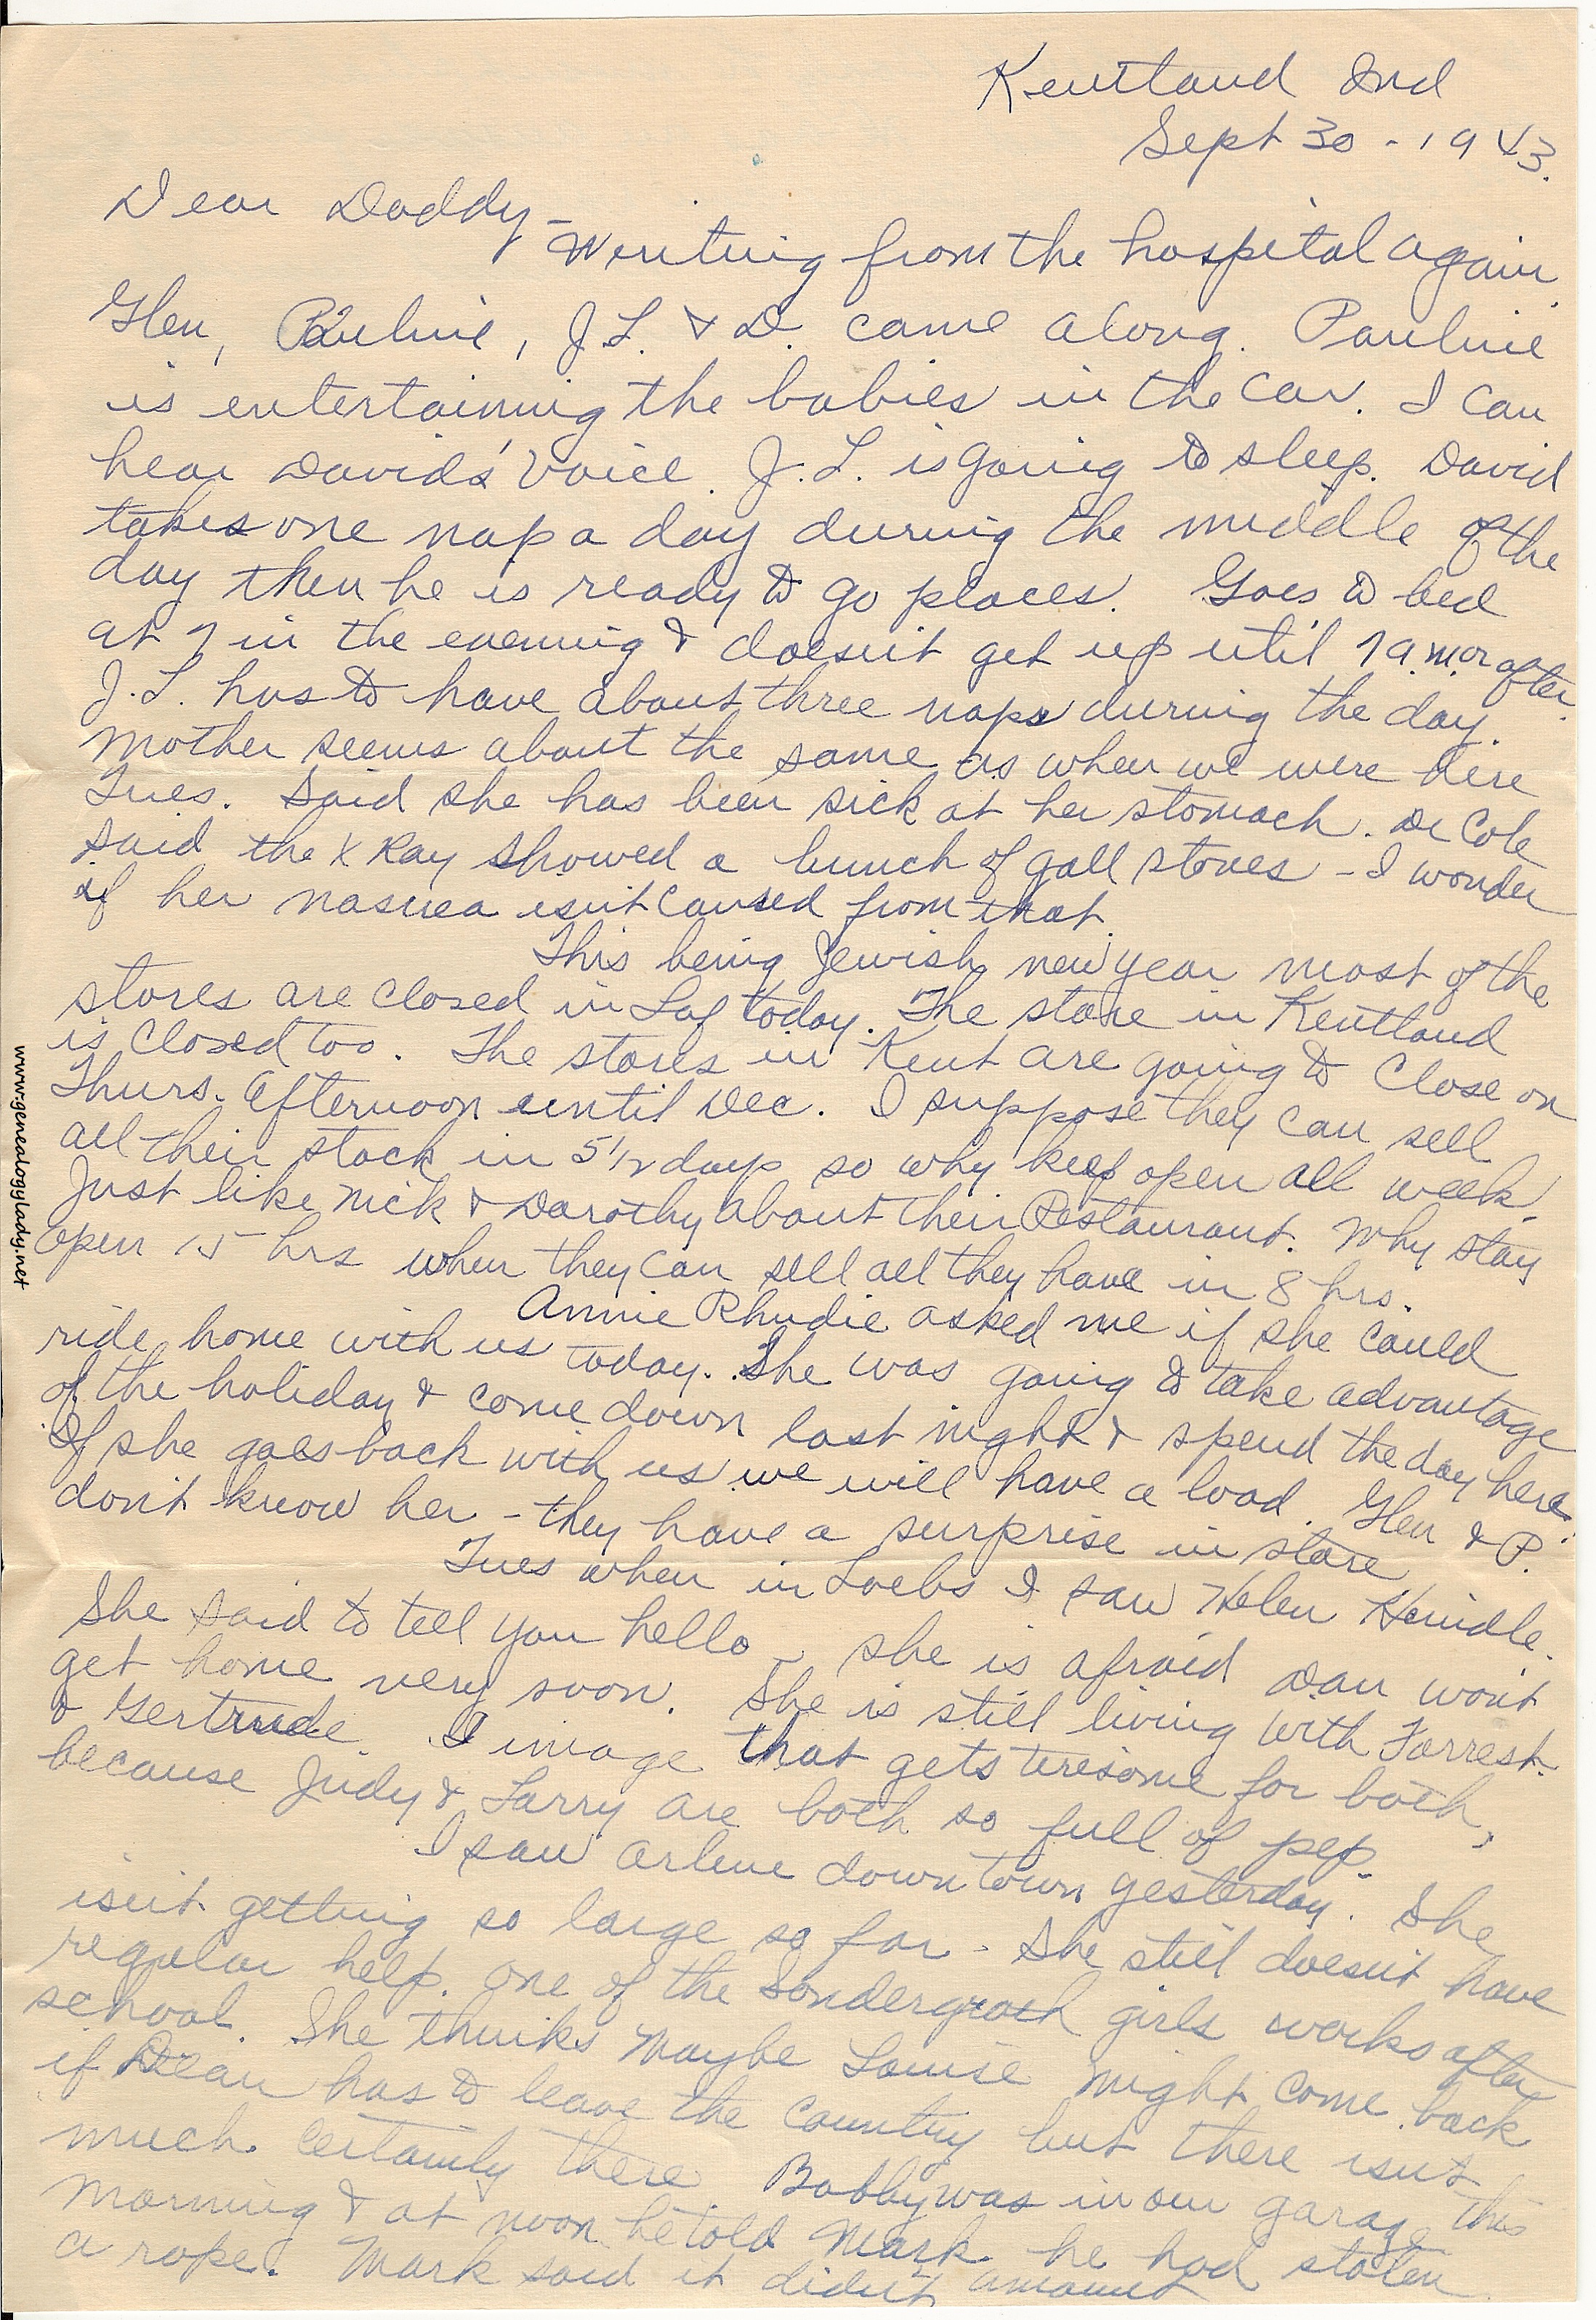 Kentland Ind
Sept 30 - 1943.
Dear Daddy -
Writing from the hospital again.
Glen, Pauline, J.L. & D. came along. Pauline
is entertaining the babies in the car. I can
hear David's voice. J.L. is going to sleep. David
takes one nap a day during the middle of the
day then he is ready to go places. Goes to bed
at 7 in the evening & doesn't get up until 7 a.m. or after.
J.L. has to have about three naps during the day.
Mother seems about the same as when we were here
Tues. Said she has been sick at her stomach. Dr Cole
said the X Ray showed a bunch of gall stones - I wonder
if her nasuea isn't caused from that.
This being Jewish new year most of the
stores are closed in Laf today. The store in Kentland
is closed too. The stores in Kent are going to close on
Thurs. afternoon until Dec. I suppose they can sell
all their stock in 5 1/2 days so why keep open all week.
Just like Nick & Dorothy about their Restaurant. Why stay
open 15 hrs when they can sell all they have in 8 hrs.
Annie Rhudie asked me if she could
ride home with us today. She was going to take advantage
of the holiday & come down last night & spend the day here.
If she goes back with us we will have a load. Glen & P.
don't know her - they have a surprise in store
Tues when in Loebs I saw Helen Hemdle.
She said to tell you hello - she is afraid Dan won't
get home very soon. She is still living with Forrest
& Gertrude. I image that gets tiresome for both,
because Judy & Larry are both so full of pep.
I saw Arlene downtown yesterday. She
isn't getting so large so far - She still doesn't have
regular help. One of the Sondergroth girls works after
school. She thinks maybe Louise might come back
if Dean has to leave the country but there isn't
much certainty there Bobby was in our garage this
morning & at noon he told Mark he had stolen
a rope. Mark said it didn't amount
www.genealogylady.net